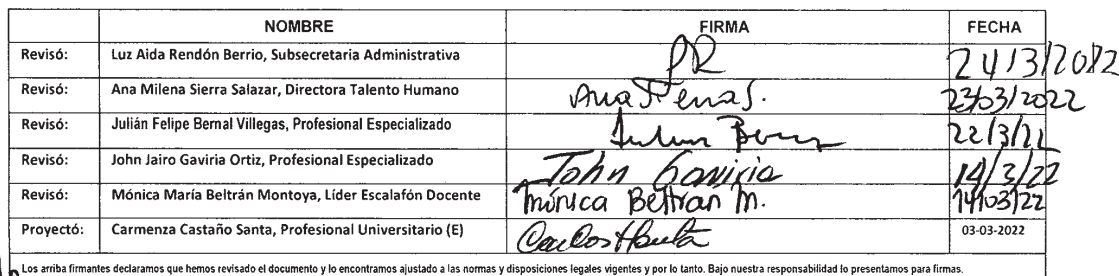 NOMBRE FIRMA FECHA
Revisó: Luz Aida Rendón Berrio, Subsecretaria Administrativa 24/3/2022
Revisó: Ana Milena Sierra Salazar, Directora Talento Humano Ana S. 23/03/2022
Revisó: Julián Felipe Bernal Villegas, Profesional Especializado 22/3/22
Revisó: John Jairo Gaviria Ortiz, Profesional Especializado John Gaviria 14/3/22
Revisó: Mónica María Beltrán Montoya, Líder Escalafón Docente Mónica Beltran M. 14/03/22
Proyectó: Carmenza Castaño Santa, Profesional Universitario (E) 03-03-2022
Los arriba firmantes declaramos que hemos revisado el documento y lo encontramos ajustado a las normas y disposiciones legales vigentes y por lo tanto. Bajo nuestra responsabilidad lo presentamos para firmas.